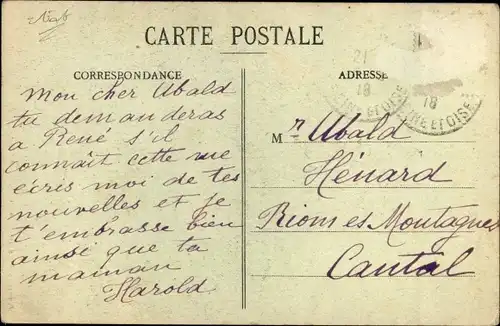 CARTE POSTALE
CORRESPONDANCE
Mon cher Ubald
tu demanderas
a René s'il
connait cette vue
écris moi de tes
nouvelles et je
t'embrasse bien
ainsi que ta
maman
Harold
ADRESSE
21
18
18
NE ET OISE
Mr Ubald
Hénard
Riom es Montagnes
Cantal